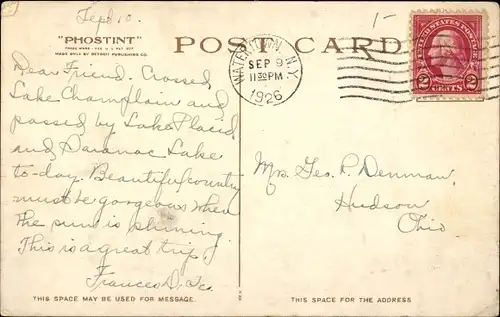 Sept. 10.
"PHOSTINT"
TRADE MARK - REG. U.S. PAT. OFF.
MADE ONLY BY DETROIT PUBLISHING CO.
POST CARD
WATERTOWN, N.Y.
SEP 9
11 30 PM
1926
1-
UNITED STATES POSTAGE
2 CENTS 2
Dear Friend. Crossed
Lake Champlain and
passed by Lake Placid
and Saranac Lake
to-day. Beautiful country
must be gorgeous when
the sun is shining.
This is a great trip
Frances D.
Mrs. Geo. P. Denman,
Hudson
Ohio
THIS SPACE MAY BE USED FOR MESSAGE.
THIS SPACE FOR THE ADDRESS